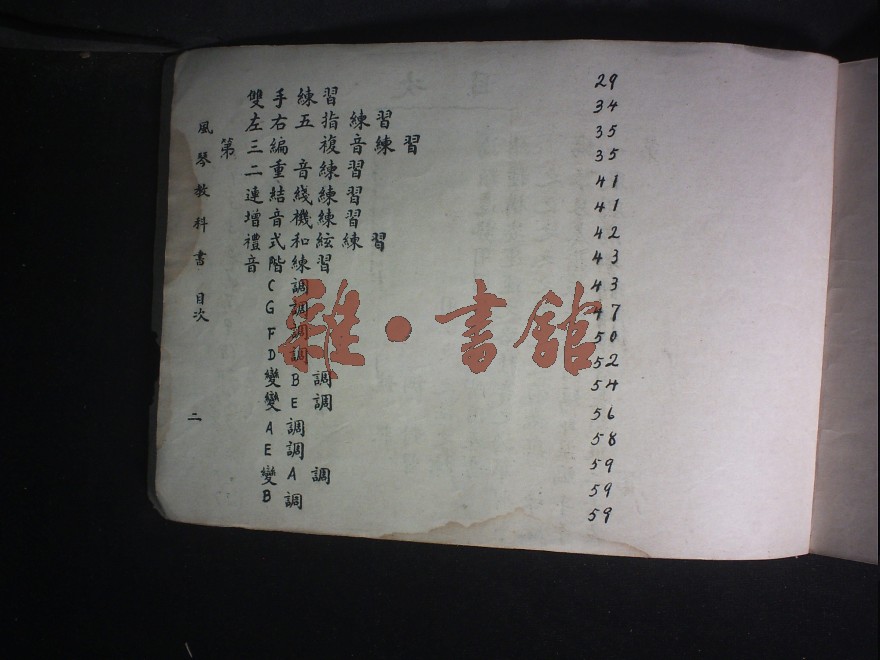 雙手練習 29
左右五指練習 34
第三編 複音練習 35
二重音練習 35
連結綫練習 41
增音機練習 41
禮式和絃練習 42
音階練習 43
C調 43
G調 47
F調 50
D調 52
變B調 54
變E調 56
A調 58
E調 59
變A調 59
B調 59
風琴教科書 目次 二
雜·書舘